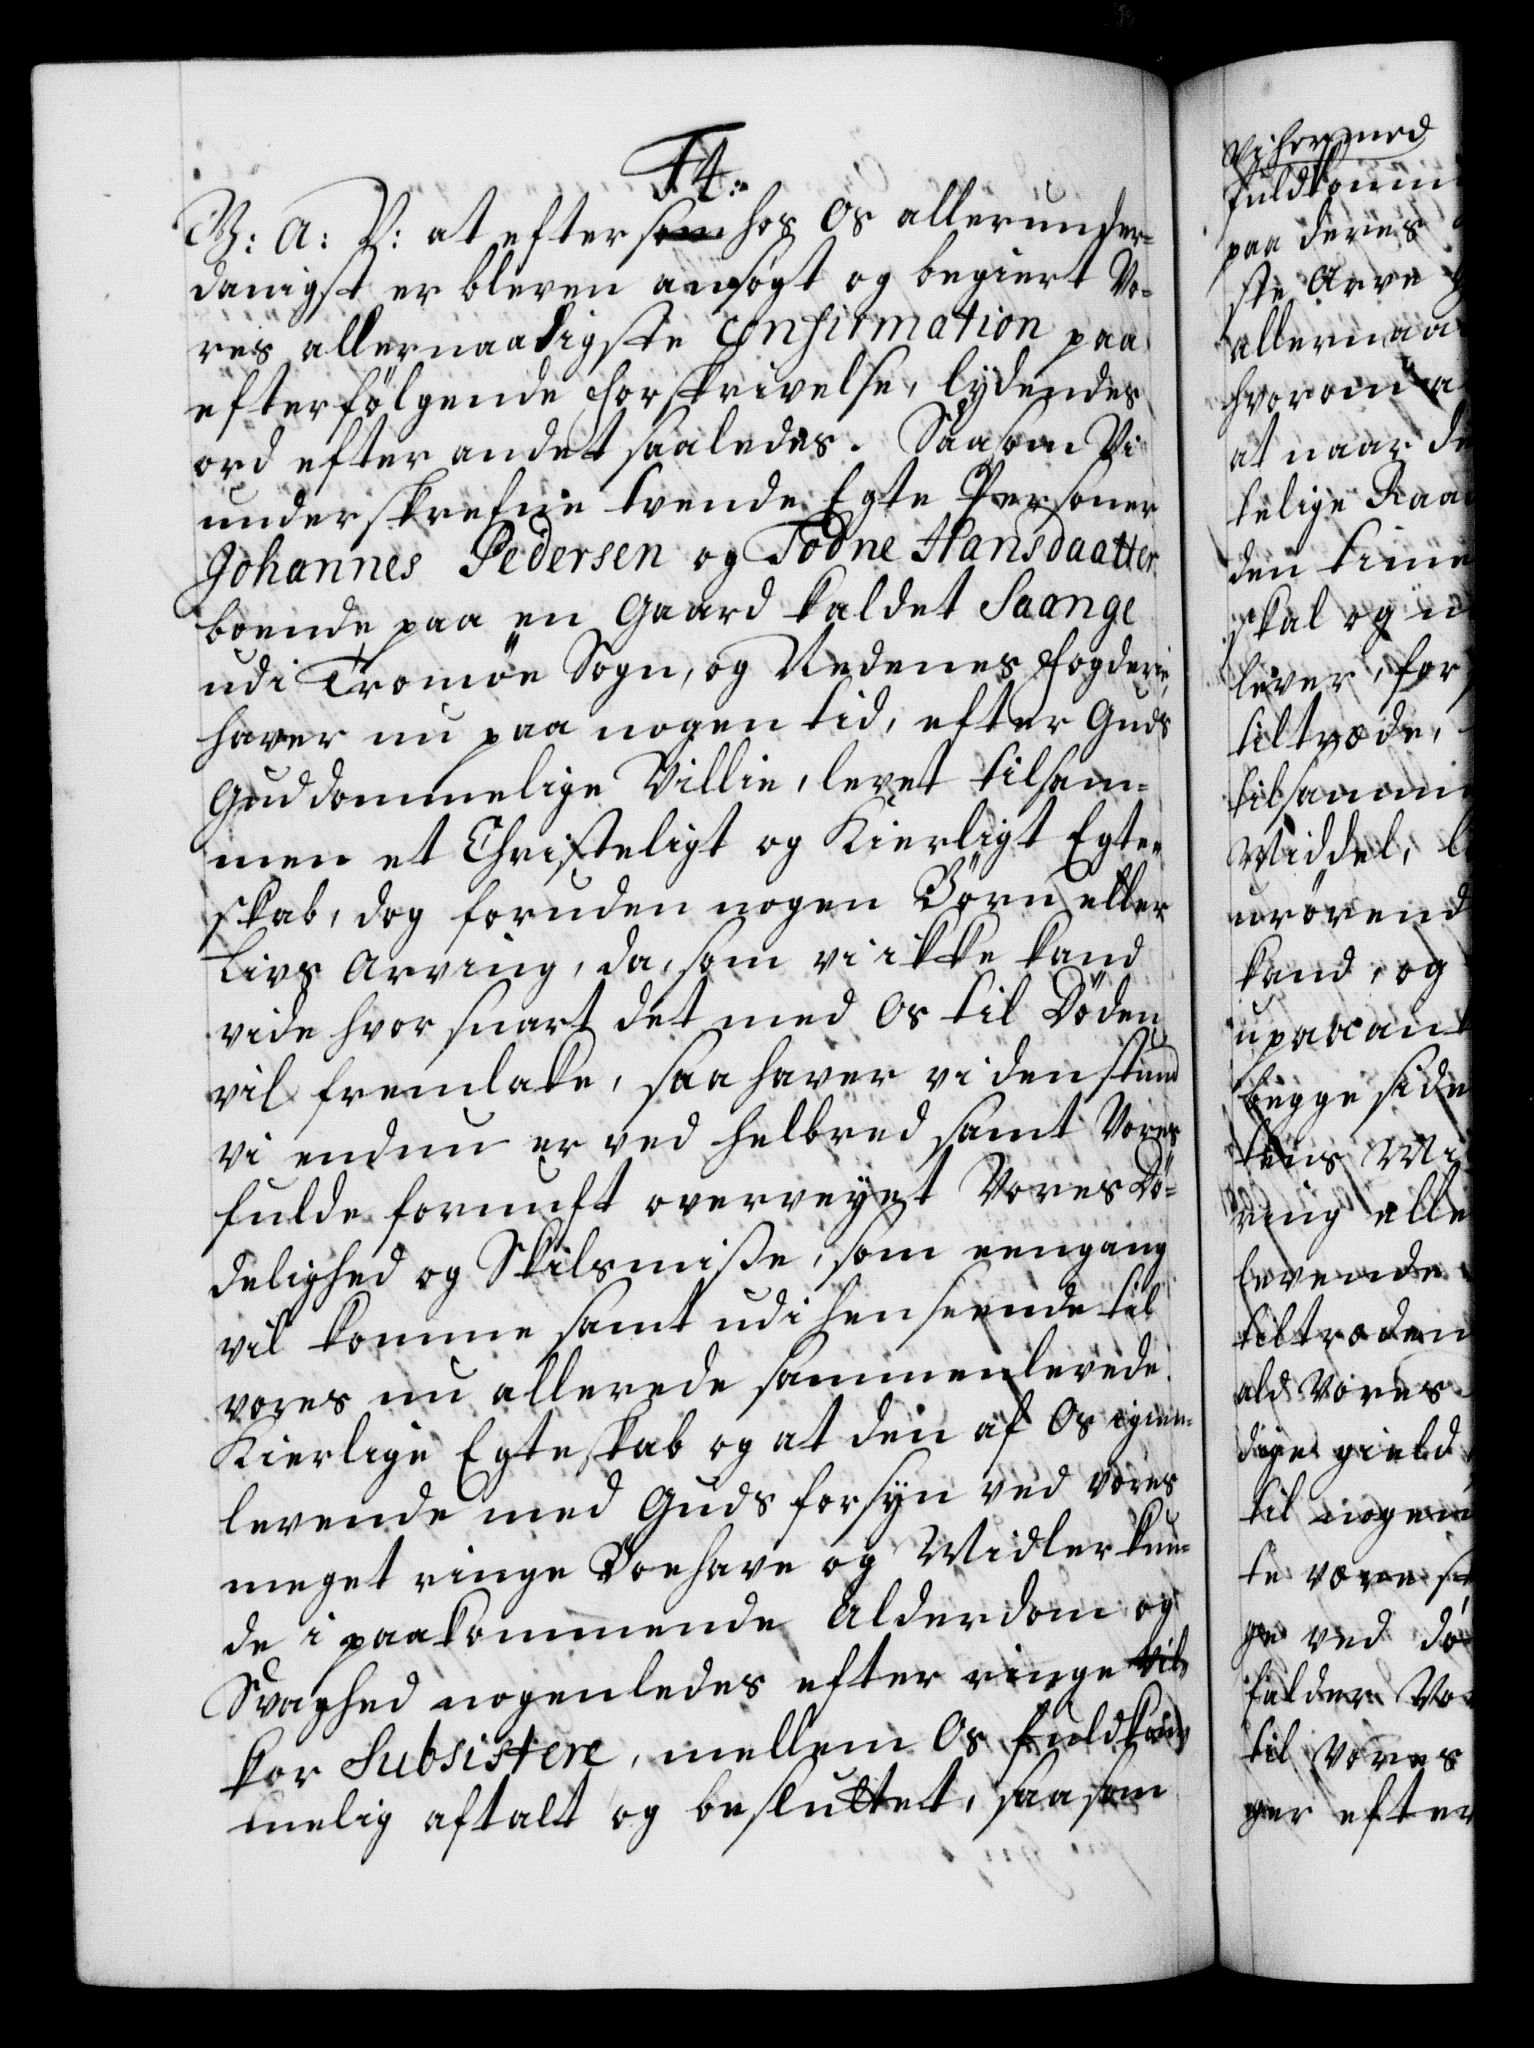 F4:
G: A: V: at efter som hos Os allerunder-
danigst er bleven ansøgt og begiert Vo-
res allernaadigste Confirmation paa
efterfölgende forskrivelse, lydendes
ord efter andet saaledes. Saasom Vi
underskrefne tvende Egte Personer
Johannes Pedersen og Todne Hansdaatter
boende paa en Gaard kaldet Saange
udi Tromöe Sogn, og Nedenes fogderie,
haver nu paa nogen tid, efter Guds
Guddommelige Villie, levet tilsam-
men et Christeligt og Kierligt Egte-
skab, dog foruden nogen Börn eller
Livs Arving, da, som vi ikke kand
vide hvor snart det med Os til Döden
vil fremlake, saa haver vi den stund
vi endnu er ved helbred samt Vores
fulde fornuft overveyet Vores Dö-
delighed og Skilsmisse, som eengang
vil komme samt udi henseende til
vores nu allerede sammenlevede
Kierlige Egteskab og at den af Os igien-
levende med Guds forsyn ved vores
meget ringe Boehave og Midler kun-
de i paakommende Alderdom og
Svaghed nogenledes efter ringe Vil-
kor Subsistere, mellem Os fuldkom-
melig aftalt og besluttet, saasom
Vi hermed
fuldkomm
paa deres
ste Arve
allernaa
hvorom a
at naar de
telige Raa
den time
skal og
lever, for
tiltræde,
tilsamm
Middel,
urörend
kand, og
upaaant
begge side
tens Mi
ring elle
levende
tiltræden
ald Vores
dige gield
til nogen
te være
ge ved dö
falder Vo
til Vores
ger efter